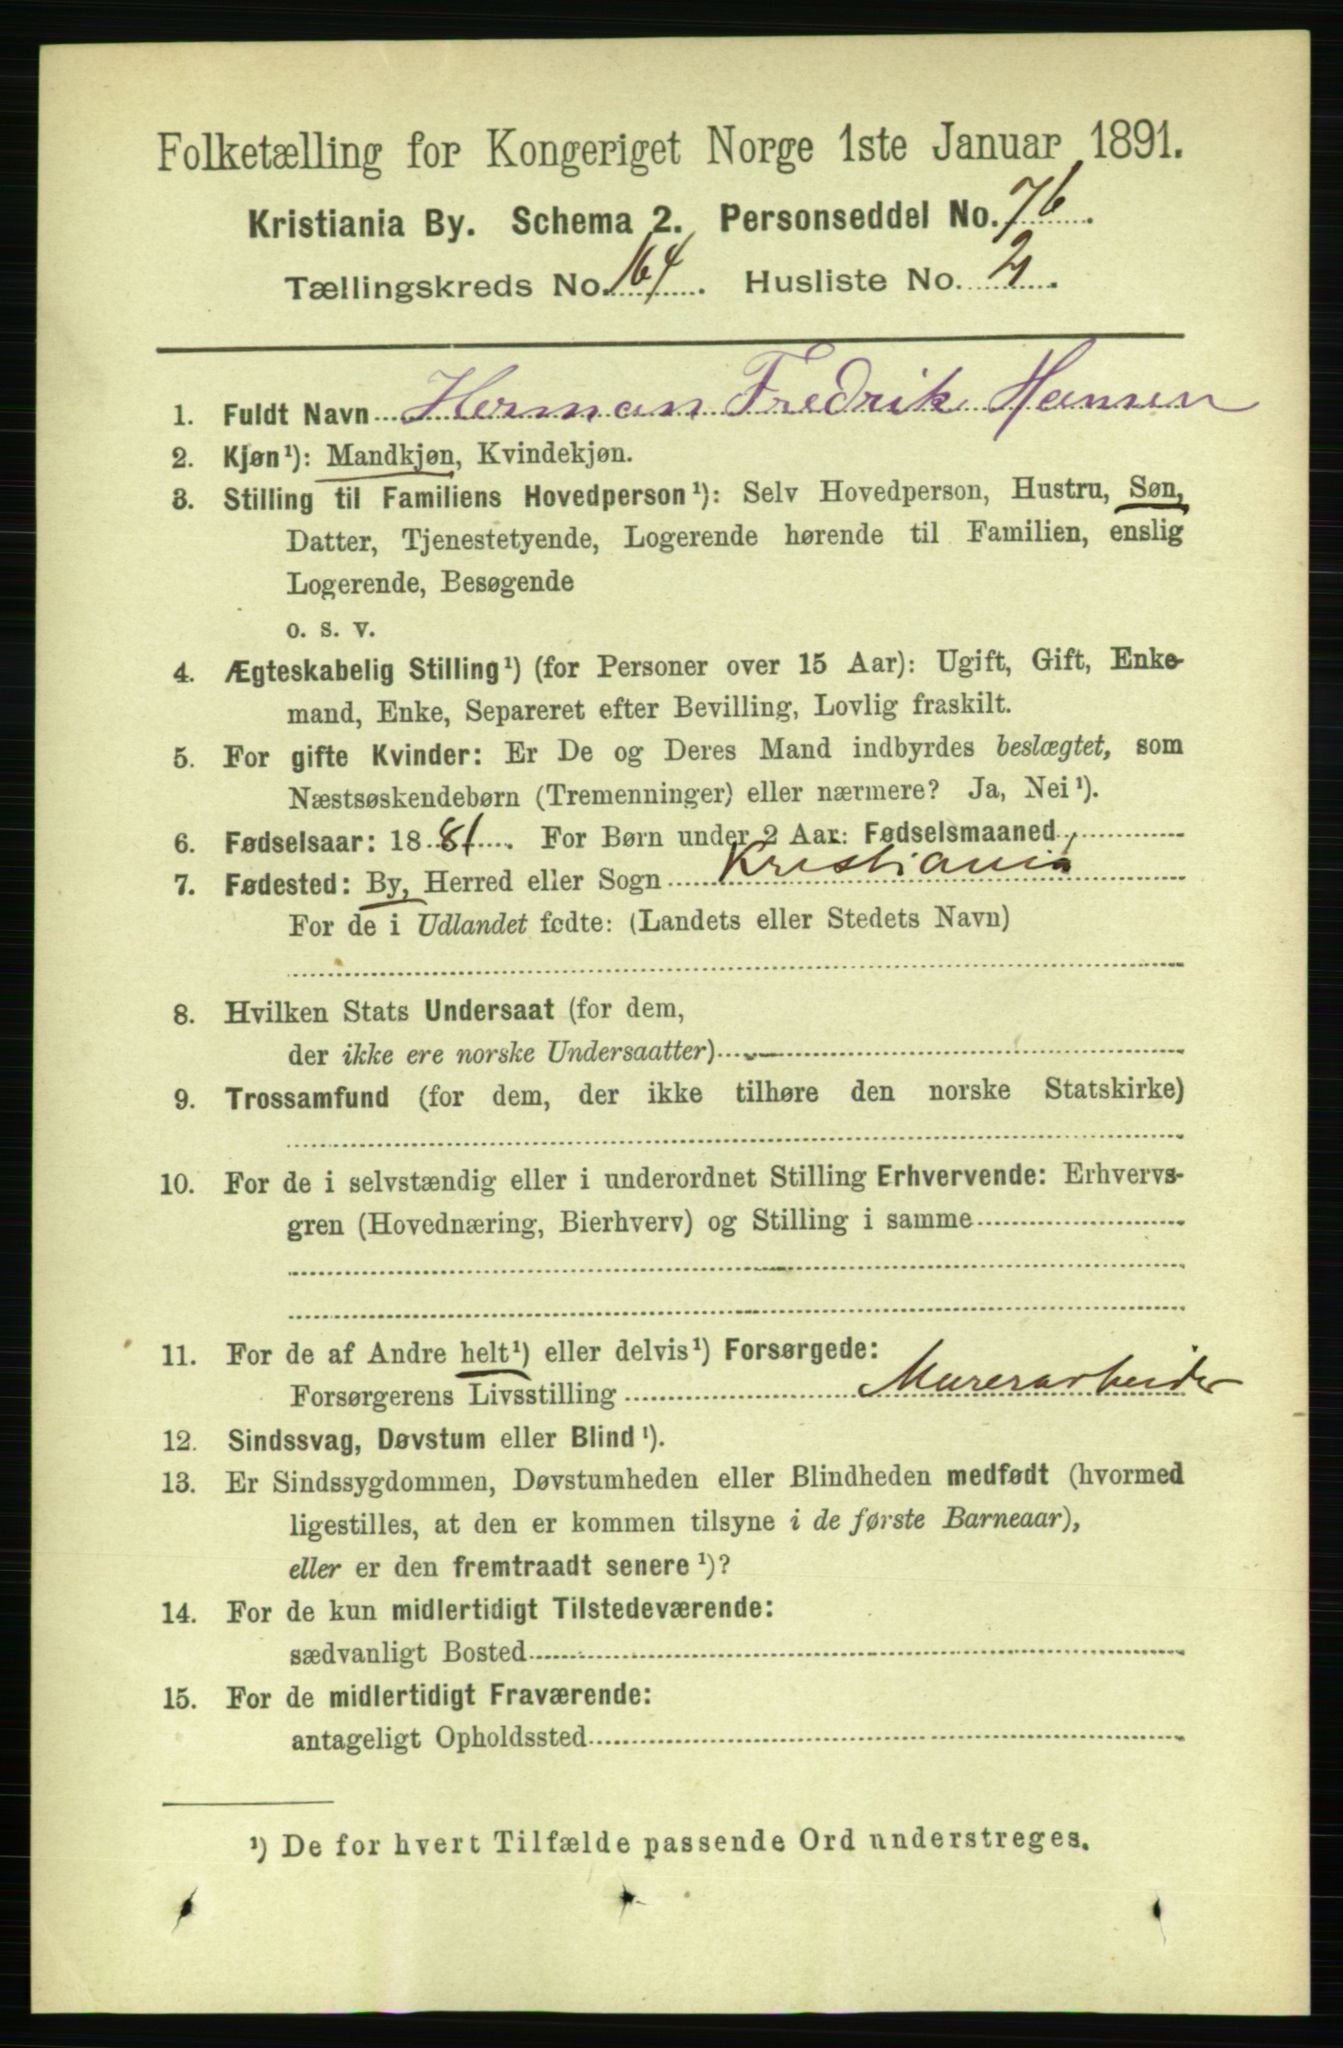 Folketælling for Kongeriget Norge 1ste Januar 1891.
Kristiania By. Schema 2. Personseddel No. 76.
Tællingskreds No. 164. Husliste No. 2.
1. Fuldt Navn Herman Fredrik Hansen
2. Kjøn¹): Mandkjøn, Kvindekjøn.
3. Stilling til Familiens Hovedperson¹): Selv Hovedperson, Hustru, Søn,
Datter, Tjenestetyende, Logerende hørende til Familien, enslig
Logerende, Besøgende
o. s. v.
4. Ægteskabelig Stilling¹) (for Personer over 15 Aar): Ugift, Gift, Enke-
mand, Enke, Separeret efter Bevilling, Lovlig fraskilt.
5. For gifte Kvinder: Er De og Deres Mand indbyrdes beslægtet, som
Næstsøskendebørn (Tremenninger) eller nærmere? Ja, Nei¹).
6. Fødselsaar: 1881. For Børn under 2 Aar: Fødselsmaaned
7. Fødested: By, Herred eller Sogn Kristiania
For de i Udlandet fødte: (Landets eller Stedets Navn)
8. Hvilken Stats Undersaat (for dem,
der ikke ere norske Undersaatter)
9. Trossamfund (for dem, der ikke tilhøre den norske Statskirke)
10. For de i selvstændig eller i underordnet Stilling Erhvervende: Erhvervs-
gren (Hovednæring, Bierhverv) og Stilling i samme
11. For de af Andre helt¹) eller delvis¹) Forsørgede:
Forsørgerens Livsstilling Murerarbeider
12. Sindssvag, Døvstum eller Blind¹).
13. Er Sindssygdommen, Døvstumheden eller Blindheden medfødt (hvormed
ligestilles, at den er kommen tilsyne i de første Barneaar),
eller er den fremtraadt senere¹)?
14. For de kun midlertidigt Tilstedeværende:
sædvanligt Bosted
15. For de midlertidigt Fraværende:
antageligt Opholdssted
¹) De for hvert Tilfælde passende Ord understreges.